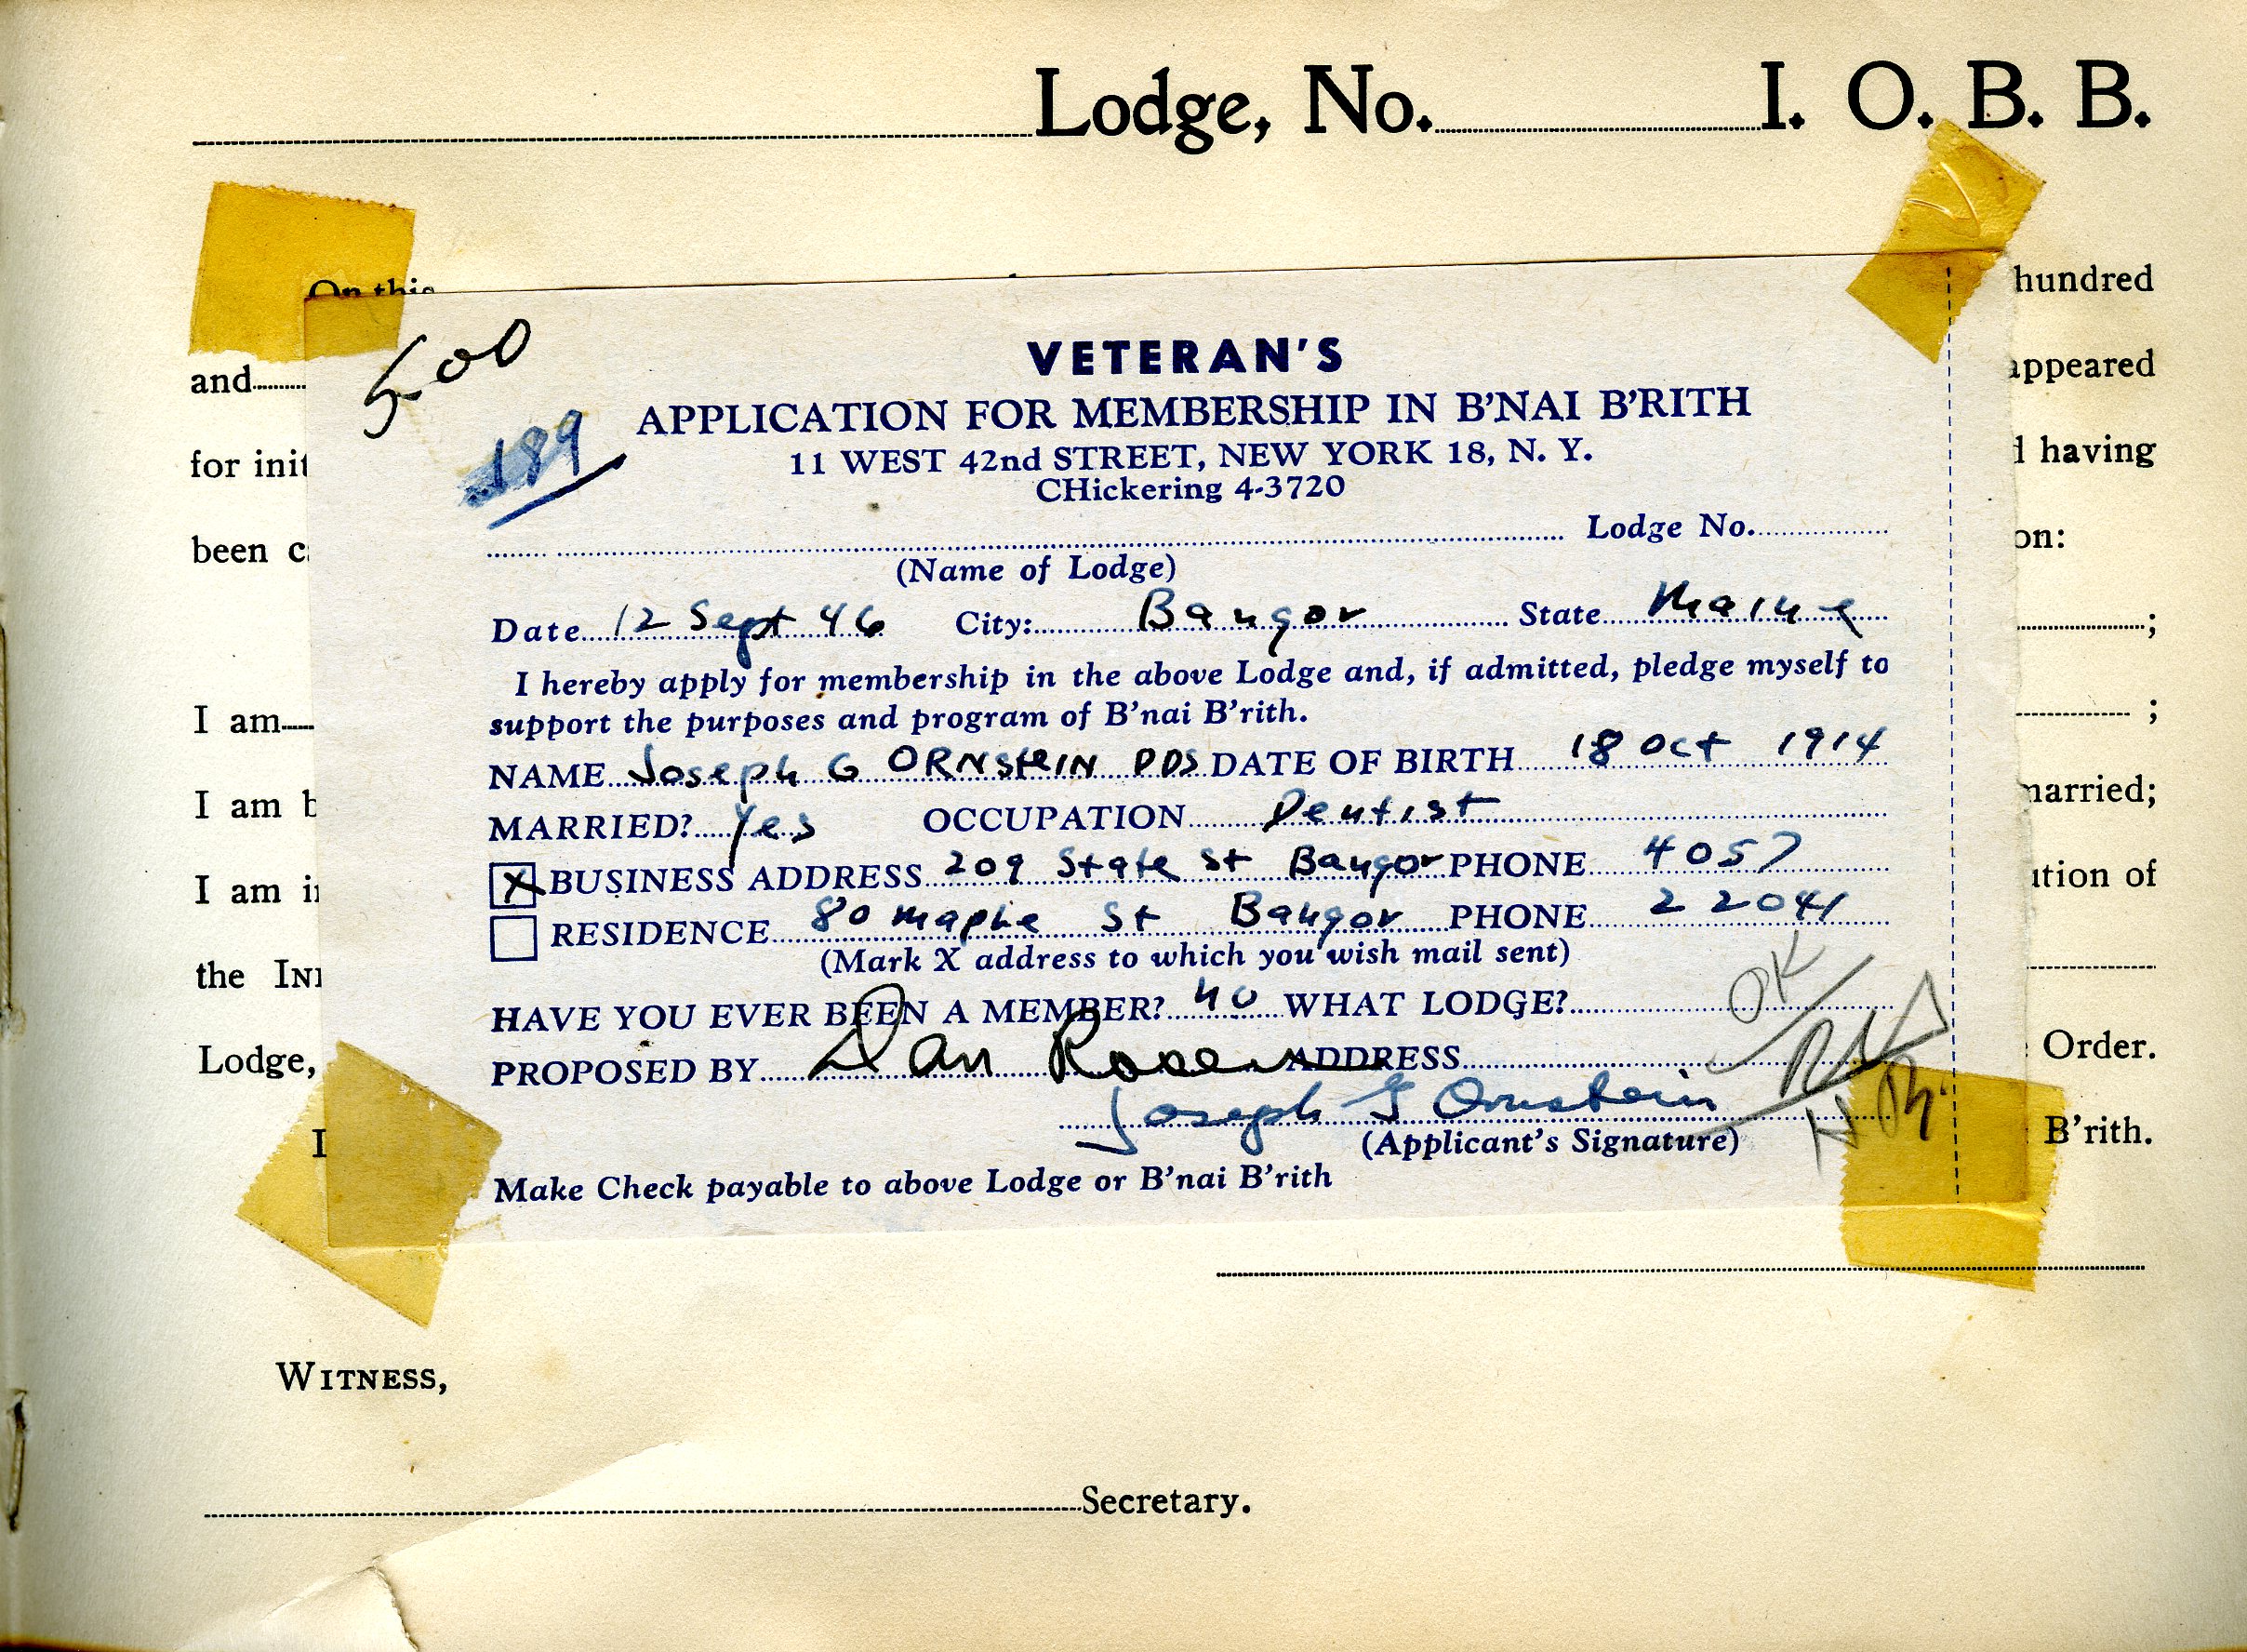 Lodge, No. I. O. B. B.
On this hundred
and appeared
for init having
been c on:
500
189
VETERAN'S
APPLICATION FOR MEMBERSHIP IN B'NAI B'RITH
11 WEST 42nd STREET, NEW YORK 18, N. Y.
CHickering 4-3720
Lodge No.
(Name of Lodge)
Date 12 Sept 46 City: Bangor State Maine
I hereby apply for membership in the above Lodge and, if admitted, pledge myself to
support the purposes and program of B'nai B'rith.
NAME Joseph G ORNSteIN DDS DATE OF BIRTH 18 Oct 1914
MARRIED? Yes OCCUPATION Dentist
X BUSINESS ADDRESS 209 State St Bangor PHONE 4057
RESIDENCE 80 Maple St Bangor PHONE 2 2041
(Mark X address to which you wish mail sent)
HAVE YOU EVER BEEN A MEMBER? no WHAT LODGE?
OK
PROPOSED BY Dan Rosen ADDRESS
Joseph G Ornstein
(Applicant's Signature)
Make Check payable to above Lodge or B'nai B'rith
;
I am ;
I am b married;
I am i ution of
the
Lodge, Order.
I B'rith.
WITNESS,
Secretary.